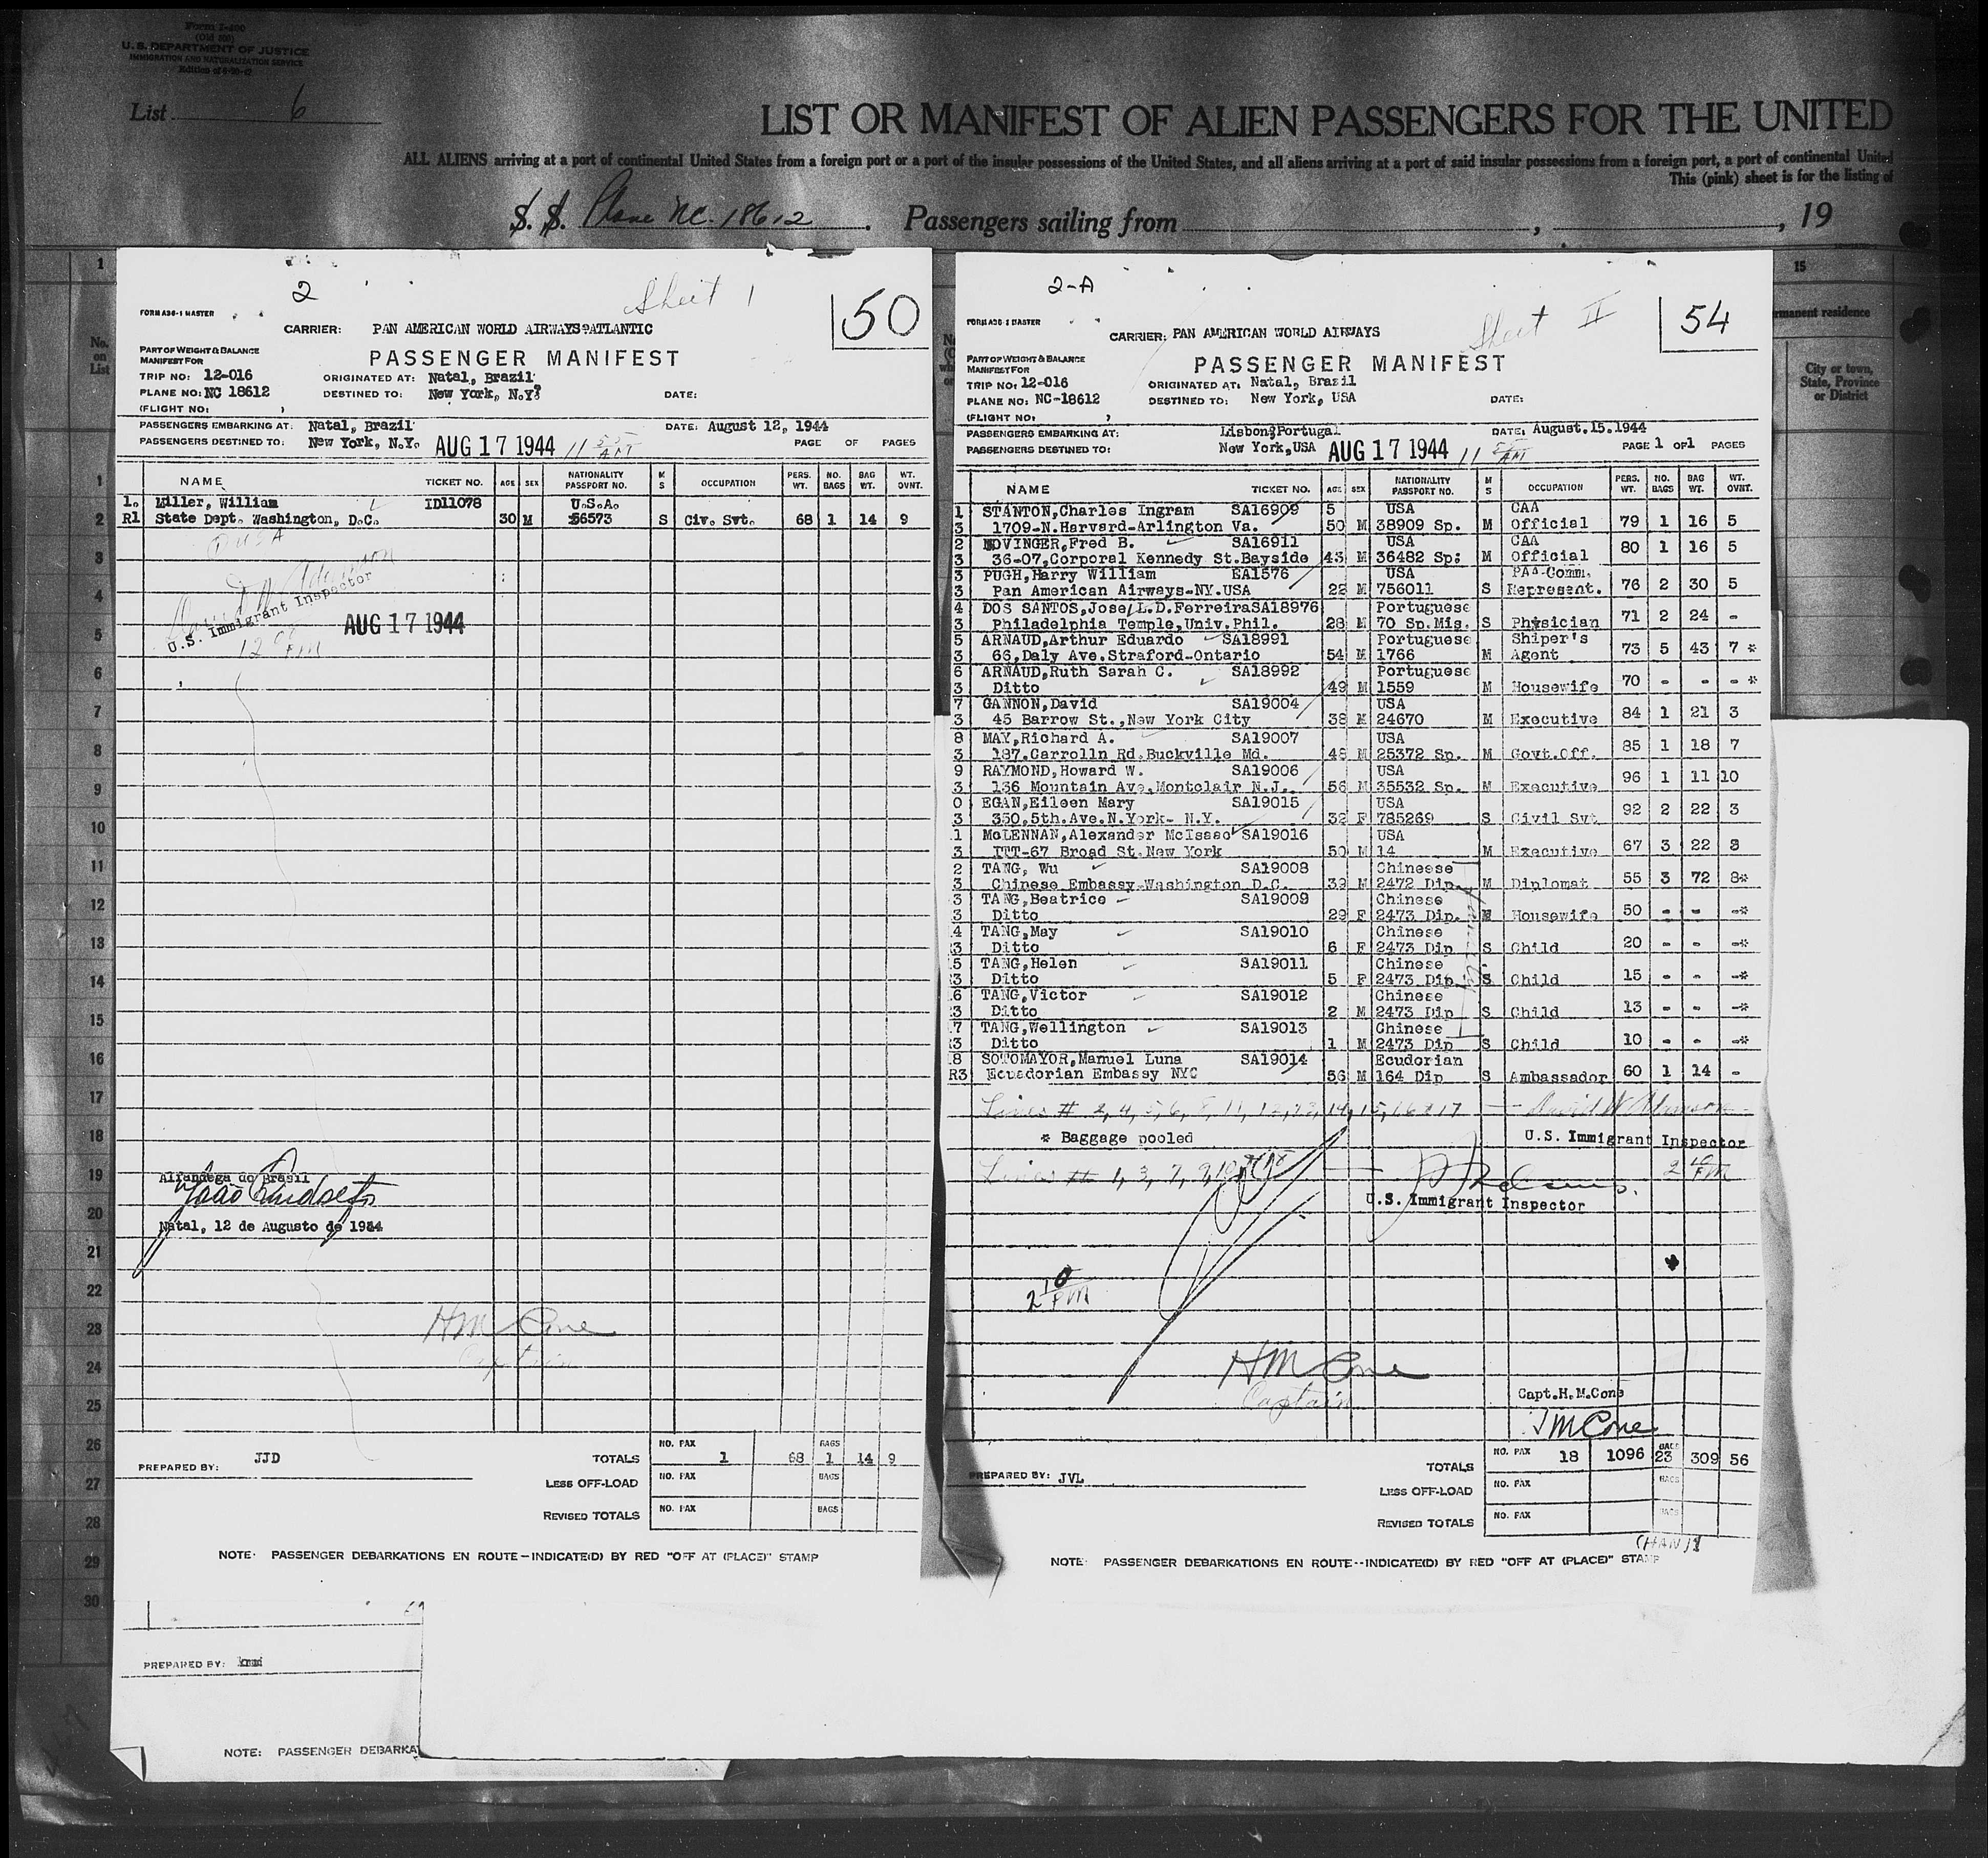 Form I-400
(Old 500)
U. S. DEPARTMENT OF JUSTICE
IMMIGRATION AND NATURALIZATION SERVICE
List 6
LIST OR MANIFEST OF ALIEN PASSENGERS FOR THE UNITED
ALL ALIENS arriving at a port of continental United States from a foreign port or a port of the insular possessions of the United States, and all aliens arriving at a port of said insular possessions from a foreign port, a port of continental United
This (pink) sheet is for the listing of
S. S. Plane NC. 18612. Passengers sailing from , , 19
2 Sheet 1 50
FORM A36-1 MASTER
CARRIER: PAN AMERICAN WORLD AIRWAYS-ATLANTIC
PART OF WEIGHT & BALANCE
MANIFEST FOR
PASSENGER MANIFEST
TRIP NO: 12-016 ORIGINATED AT: Natal, Brazil
PLANE NO: NC 18612 DESTINED TO: New York, N.Y. DATE:
(FLIGHT NO: )
PASSENGERS EMBARKING AT: Natal, Brazil DATE: August 12, 1944
PASSENGERS DESTINED TO: New York, N.Y. AUG 17 1944 11 55 AM PAGE OF PAGES
NAME TICKET NO. AGE SEX NATIONALITY PASSPORT NO. M S OCCUPATION PERS. WT. NO. BAGS BAG WT. WT. OVNT.
1. Miller, William ID11078 U.S.A.
R1 State Dept. Washington, D.C. 30 M 56573 S Civ. Svt. 68 1 14 9
U.S. Immigrant Inspector
AUG 17 1944
PM
Alfandega do Brasil
Natal, 12 de Augusto de 1944
HM Cone
Captain
PREPARED BY: JJD
TOTALS NO. PAX 1 68 BAGS 1 14 9
LESS OFF-LOAD NO. PAX BAGS
REVISED TOTALS NO. PAX BAGS
NOTE: PASSENGER DEBARKATIONS EN ROUTE-INDICATE(D) BY RED "OFF AT (PLACE)" STAMP
PREPARED BY:
NOTE: PASSENGER DEBARKA
2-A Sheet II 54
FORM A36-1 MASTER
CARRIER: PAN AMERICAN WORLD AIRWAYS
PART OF WEIGHT & BALANCE
MANIFEST FOR
PASSENGER MANIFEST
TRIP NO: 12-016 ORIGINATED AT: Natal, Brazil
PLANE NO: NC-18612 DESTINED TO: New York, USA DATE:
(FLIGHT NO: )
PASSENGERS EMBARKING AT: Lisbon, Portugal DATE: August.15.1944
PASSENGERS DESTINED TO: New York,USA AUG 17 1944 11 55 AM PAGE 1 OF 1 PAGES
NAME TICKET NO. AGE SEX NATIONALITY PASSPORT NO. M S OCCUPATION PERS. WT. NO. BAGS BAG WT. WT. OVNT.
1 STANTON,Charles Ingram SA16909 5 USA CAA
3 1709-N.Harvard-Arlington Va. 50 M 38909 Sp. M Official 79 1 16 5
2 NOVINGER,Fred B. SA16911 USA CAA
3 36-07,Corporal Kennedy St.Bayside 43 M 36482 Sp; M Official 80 1 16 5
3 PUGH,Harry William EA1576 USA PAA-Comm.
3 Pan American Airways-NY.USA 22 M 756011 S Represent. 76 2 30 5
4 DOS SANTOS,Jose/L.D.Ferreira SA18976 Portuguese
3 Philadelphia Temple,Univ.Phil. 28 M 70 Sp.Mis. S Physician 71 2 24 -
5 ARNAUD,Arthur Eduardo SA18991 Portuguese Shiper's
3 66,Daly Ave.Straford-Ontario 54 M 1766 M Agent 73 5 43 7 *
6 ARNAUD,Ruth Sarah C. SA18992 Portuguese
3 Ditto 49 M 1559 M Housewife 70 - - - *
7 GANNON,David SA19004 USA
3 45 Barrow St.,New York City 38 M 24670 M Executive 84 1 21 3
8 MAY,Richard A. SA19007 USA
3 187.Carrolln Rd.Buckville Md. 48 M 25372 Sp. M Govt.Off. 85 1 18 7
9 RAYMOND,Howard W. SA19006 USA
3 136 Mountain Ave,Montclair N.J. 56 M 35532 Sp. M Executive 96 1 11 10
0 EGAN,Eileen Mary SA19015 USA
3 350,5th.Ave.N.York- N.Y. 32 F 785269 S Civil Svt 92 2 22 3
1 McLENNAN,Alexander McIsaac SA19016 USA
3 ITT-67 Broad St.New York 50 M 14 M Executive 67 3 22 3
2 TANG, Wu SA19008 Chineese
3 Chinese Embassy-Washington D.C. 39 M 2472 Dip. M Diplomat 55 3 72 8*
3 TANG,Beatrice SA19009 Chinese
3 Ditto 29 F 2473 Dip. M Housewife 50 - - -*
4 TANG,May SA19010 Chinese
3 Ditto 6 F 2473 Dip S Child 20 - - -*
5 TANG,Helen SA19011 Chinese
3 Ditto 5 F 2473 Dip S Child 15 - - -*
6 TANG,Victor SA19012 Chinese
3 Ditto 2 M 2473 Dip S Child 13 - - -*
7 TANG,Wellington SA19013 Chinese
3 Ditto 1 M 2473 Dip S Child 10 - - -*
8 SOTOMAYOR,Manuel Luna SA19014 Ecudorian
R3 Ecuadorian Embassy NYC 56 M 164 Dip S Ambassador 60 1 14 -
Lines # 2, 4, 5, 6, 8, 11, 12, 13, 14, 15, 16 & 17
* Baggage pooled U.S. Immigrant Inspector
Lines # 1, 3, 7, 9, 10
U.S. Immigrant Inspector
2 10 PM
HM Cone
Captain
Capt.H.M.Cone
HMCone
PREPARED BY: JVL
TOTALS NO. PAX 18 1096 BAGS 23 309 56
LESS OFF-LOAD NO. PAX BAGS
REVISED TOTALS NO. PAX BAGS
NOTE: PASSENGER DEBARKATIONS EN ROUTE--INDICATE(D) BY RED "OFF AT (PLACE)" STAMP
No. on List
1
2
3
4
5
6
7
8
9
10
11
12
13
14
15
16
17
18
19
20
21
22
23
24
25
26
27
28
29
30
15
rmanent residence
City or town,
State, Province
or District